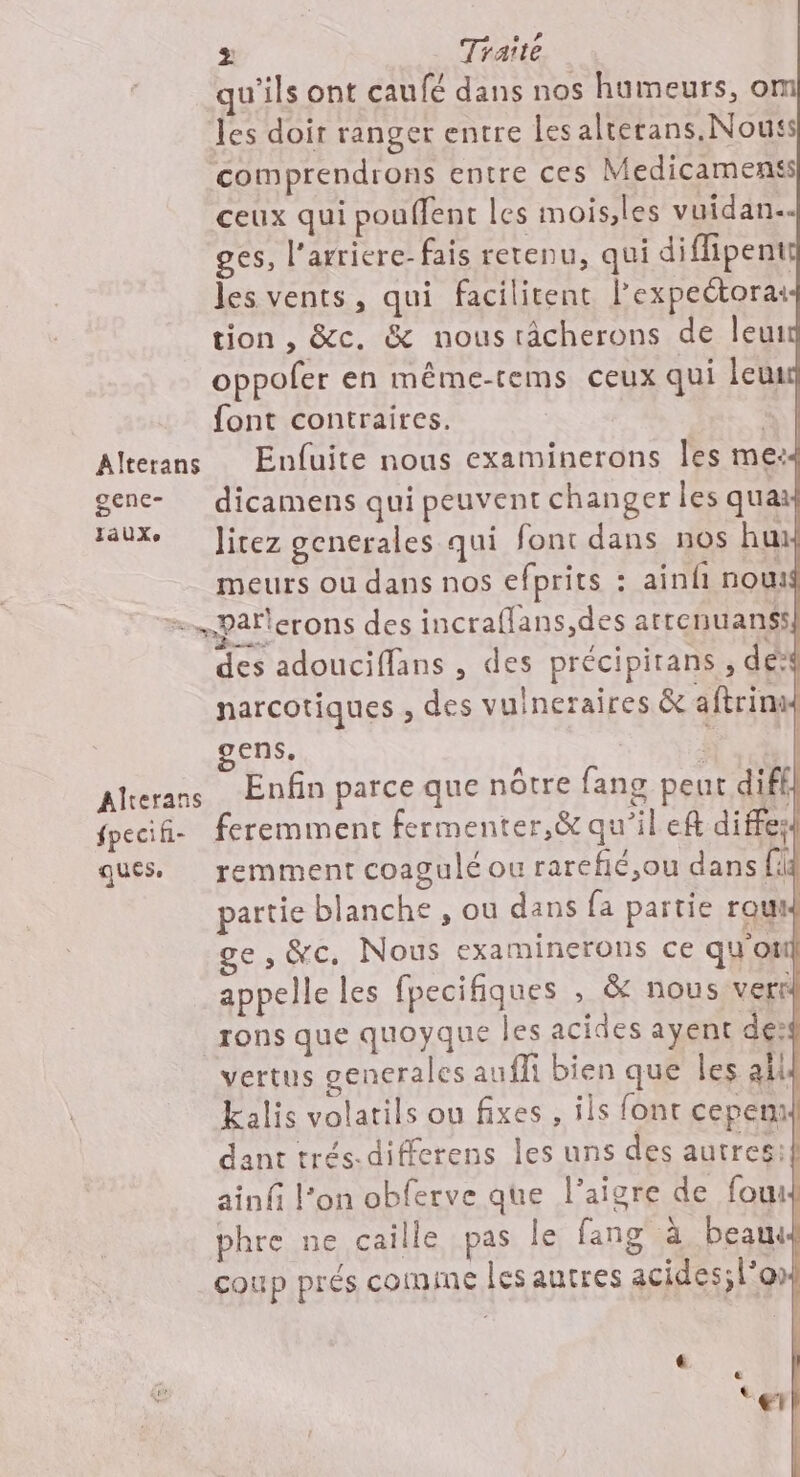 2 Traité
qu'ils ont cauſé dans nos humeurs, on
les doit ranger entre les alterans. Nous
comprendrons entre ces Medicamens
ceux qui pouſſent les mois, les vuidan-
ges, l'arriere-fais retenu, qui diſſipent
les vents, qui facilitent l'expectora-
tion, &c. & nous tâcherons de leur
oppoſer en même-tems ceux qui leur
ſont contraires.
Alterans gene- raux.
Enſuite nous examinerons les me-
dicamens qui peuvent changer les qua-
litez generales qui ſont dans nos hu-
meurs ou dans nos eſprits : ainſi nous
parlerons des incraſſans, des attenuans,
des adouciſſans, des précipitans, des
narcotiques, des vulneraires & aſtrin-
gens.
Alterans ſpecifi- ques.
Enfin parce que nôtre ſang peut dif-
feremment fermenter, & qu'il eſt diffe-
remment coagulé ou rarefié, ou dans ſa
partie blanche, ou dans ſa partie rou-
ge, &c. Nous examinerons ce qu'on
appelle les ſpecifiques, & nous ver-
rons que quoyque les acides ayent des
vertus generales auſſi bien que les al-
kalis volatils ou fixes, ils ſont cepen-
dant trés-differens les uns des autres:
ainſi l'on obſerve que l'aigre de ſou-
phre ne caille pas le ſang à beau-
coup prés comme les autres acides; l'on